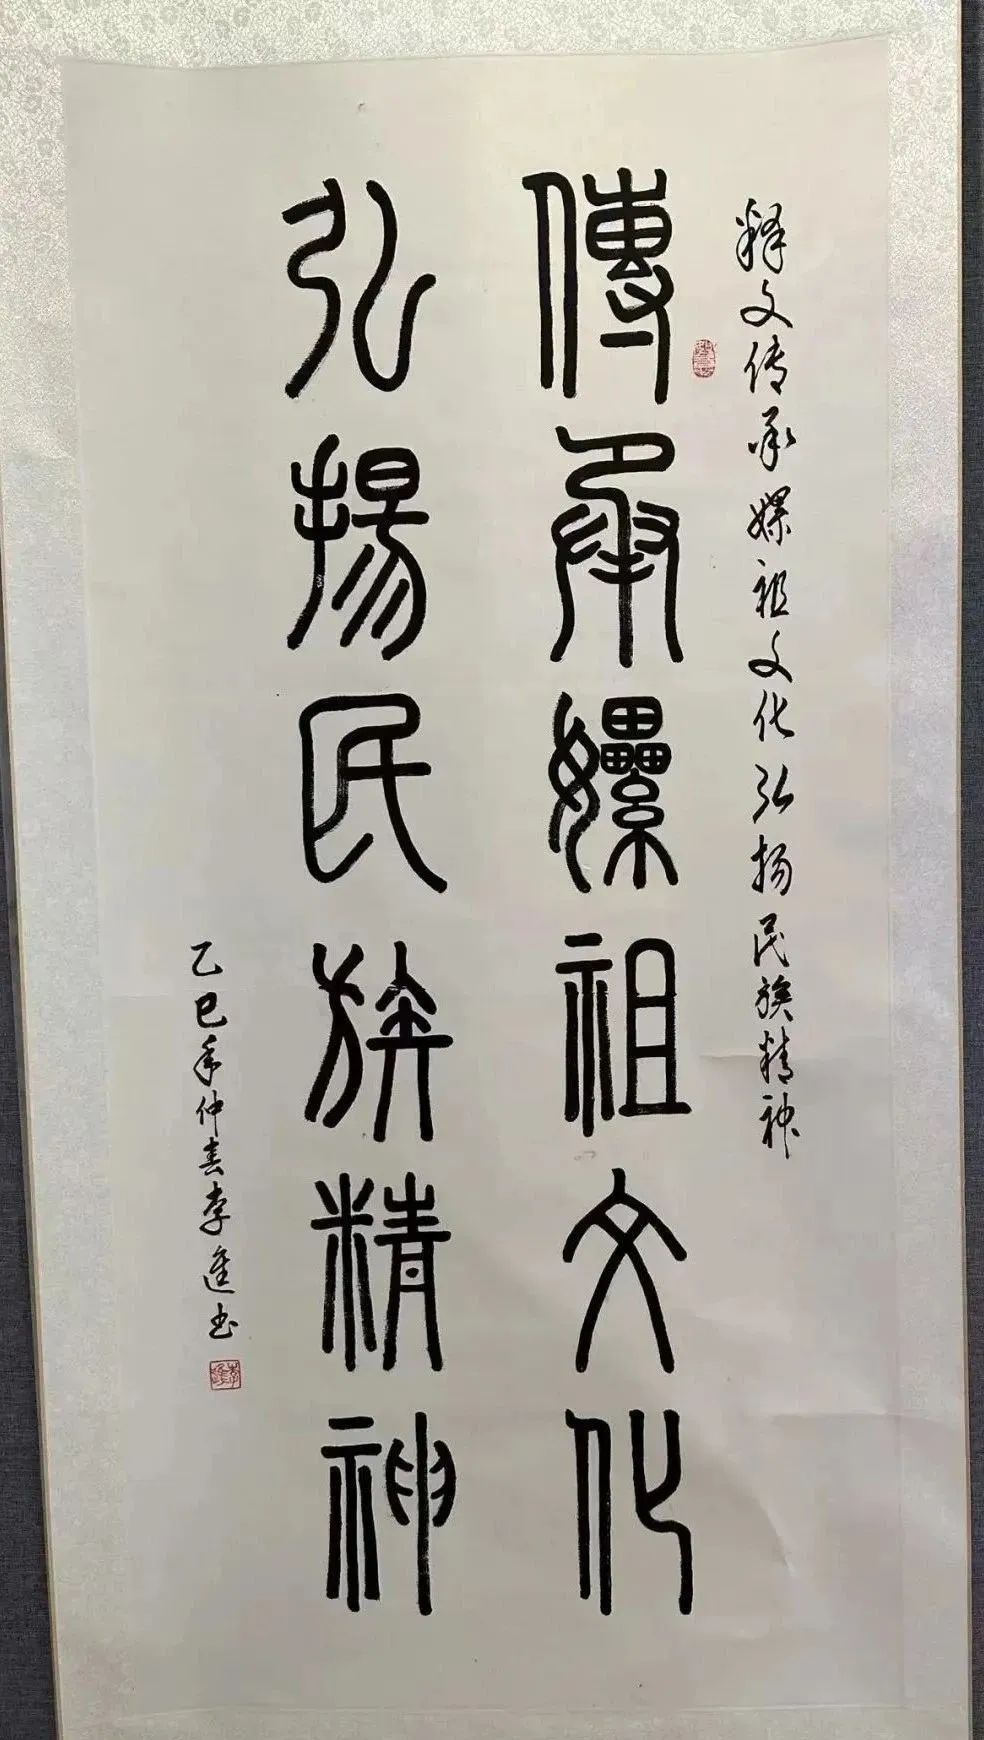 释文传承嫘祖文化弘扬民族精神
傳承嫘祖文化
弘揚民族精神
乙巳年仲春李進书